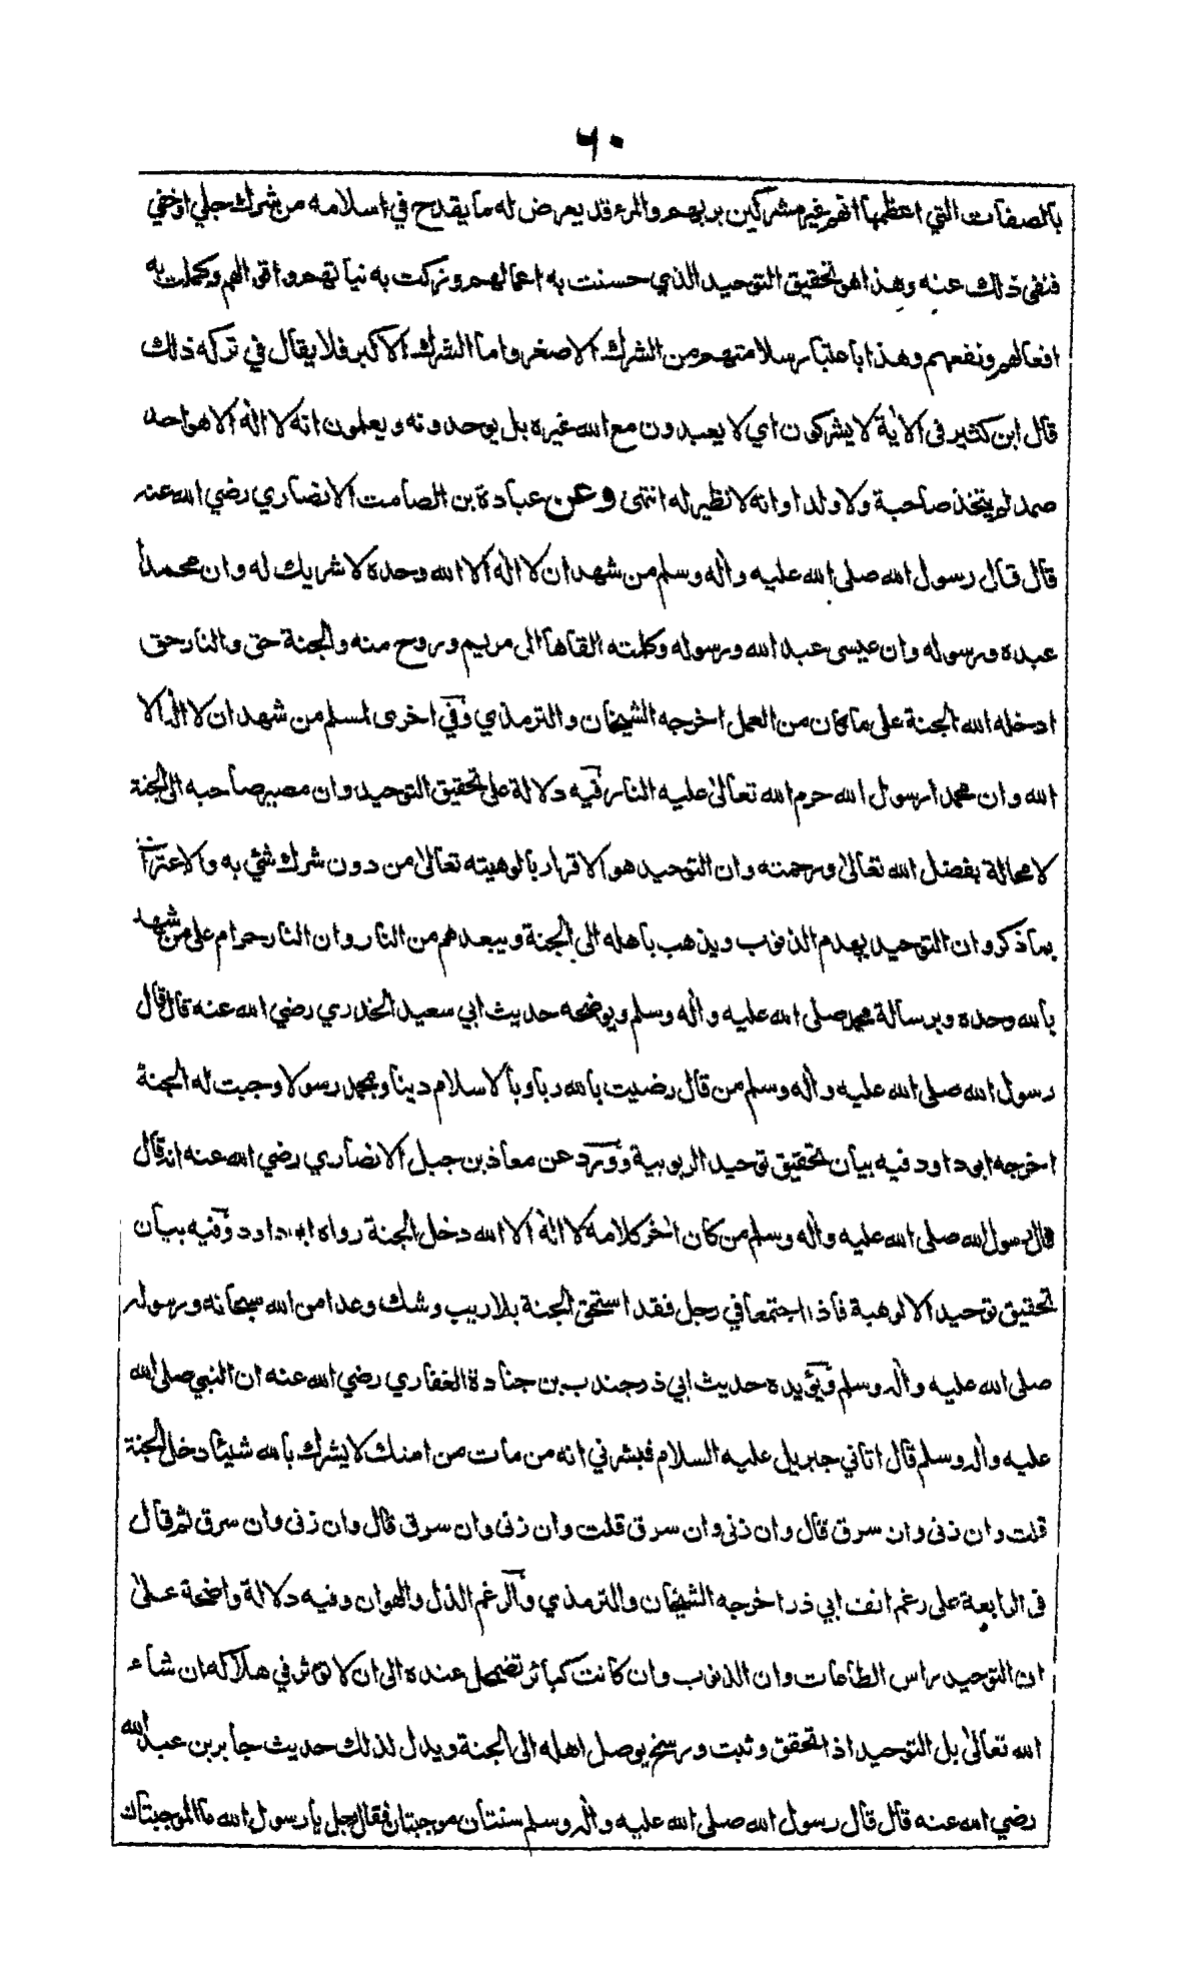 ٦٠
بالصفات التي اعظمها انهم غير مشركين بربهم والمرء قد يعرض له ما يقدح في اسلامه من شرك جلي او خفي
فنفى ذلك عنه وهذا هو تحقيق التوحيد الذي حسنت به اعمالهم وزكت به نياتهم واقوالهم وكملت به
افعالهم ونفعهم وهذا باعتبار سلامتهم من الشرك الاصغر واما الشرك الاكبر فلا يقال في تركه ذلك
قال ابن كثير في الاٰية لا يشركون اي لا يعبدون مع الله غيره بل يوحدونه ويعلمون انه لا اله الا هو احد
صمد لم يتخذ صاحبة ولا ولدا وانه لا نظير له انتهى وعن عبادة بن الصامت الانصاري رضي الله عنه
قال قال رسول الله صلى الله عليه واٰله وسلم من شهد ان لا اله الا الله وحده لا شريك له وان محمدا
عبده ورسوله وان عيسى عبد الله ورسوله وكلمته القاها الى مريم وروح منه والجنة حق والنار حق
ادخله الله الجنة على ما كان من العمل اخرجه الشيخان والترمذي وفي اخرى لمسلم من شهد ان لا اله الا
الله وان محمدا رسول الله حرم الله تعالىٰ عليه النار فيه دلالة على تحقيق التوحيد وان مصير صاحبه الى الجنة
لا محالة بفضل الله تعالىٰ ورحمته وان التوحيد هو الاقرار بالوهيته تعالىٰ من دون شرك شيء به والاعتراف
بما ذكر وان التوحيد يهدم الذنوب ويذهب باهله الى الجنة ويبعدهم من النار وان النار حرام على من شهد
بالله وحده وبرسالة محمد صلى الله عليه واٰله وسلم ويوضحه حديث ابي سعيد الخدري رضي الله عنه قال قال
رسول الله صلى الله عليه واٰله وسلم من قال رضيت بالله ربا وبالاسلام دينا وبمحمد رسولا وجبت له الجنة
اخرجه ابو داود فيه بيان تحقيق توحيد الربوبية وورد عن معاذ بن جبل الانصاري رضي الله عنه انه قال
قال رسول الله صلى الله عليه واٰله وسلم من كان اٰخر كلامه لا اله الا الله دخل الجنة رواه ابو داود وفيه بيان
تحقيق توحيد الالوهية فاذا اجتمعا في رجل فقد استحق الجنة بلا ريب وشك وعدا من الله سبحانه ورسوله
صلى الله عليه واٰله وسلم ويؤيده حديث ابي ذر جندب بن جنادة الغفاري رضي الله عنه ان النبي صلى الله
عليه واٰله وسلم قال اتاني جبريل عليه السلام فبشرني انه من مات من امتك لا يشرك بالله شيئا دخل الجنة
قلت وان زنى وان سرق قال وان زنى وان سرق قلت وان زنى وان سرق قال وان زنى وان سرق ثم قال
في الرابعة على رغم انف ابي ذر اخرجه الشيخان والترمذي والرغم الذل والهوان وفيه دلالة واضحة علىٰ
ان التوحيد راس الطاعات وان الذنوب وان كانت كبائر تضمحل عنده الى ان لا تؤثر في هلاكه ان شاء
الله تعالىٰ بل التوحيد اذا تحقق وثبت ورسخ يوصل اهله الى الجنة ويدل لذلك حديث جابر بن عبد الله
رضي الله عنه قال قال رسول الله صلى الله عليه واٰله وسلم سنتان موجبتان فقال رجل يا رسول الله ما الموجبتان